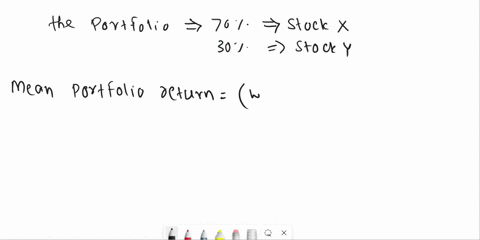 the Portfolio ⇒ 70% ⇒ Stock X
30% ⇒ Stock Y
Mean Portfolio return = (w